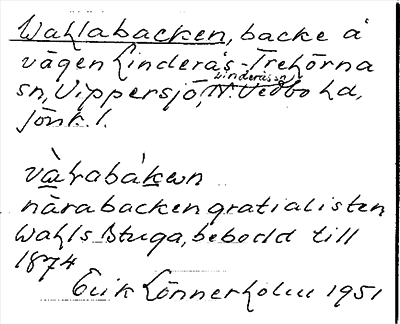 Wahlabacken, backe å
vägen Linderås-Trehörna
Linderås sn,
sn, Vippersjö, N. Vedbo hd,
Jönk. l.
nära backen gratialisten
Wahls stuga, bebodd till
1874
Erik Lönnerholm 1951